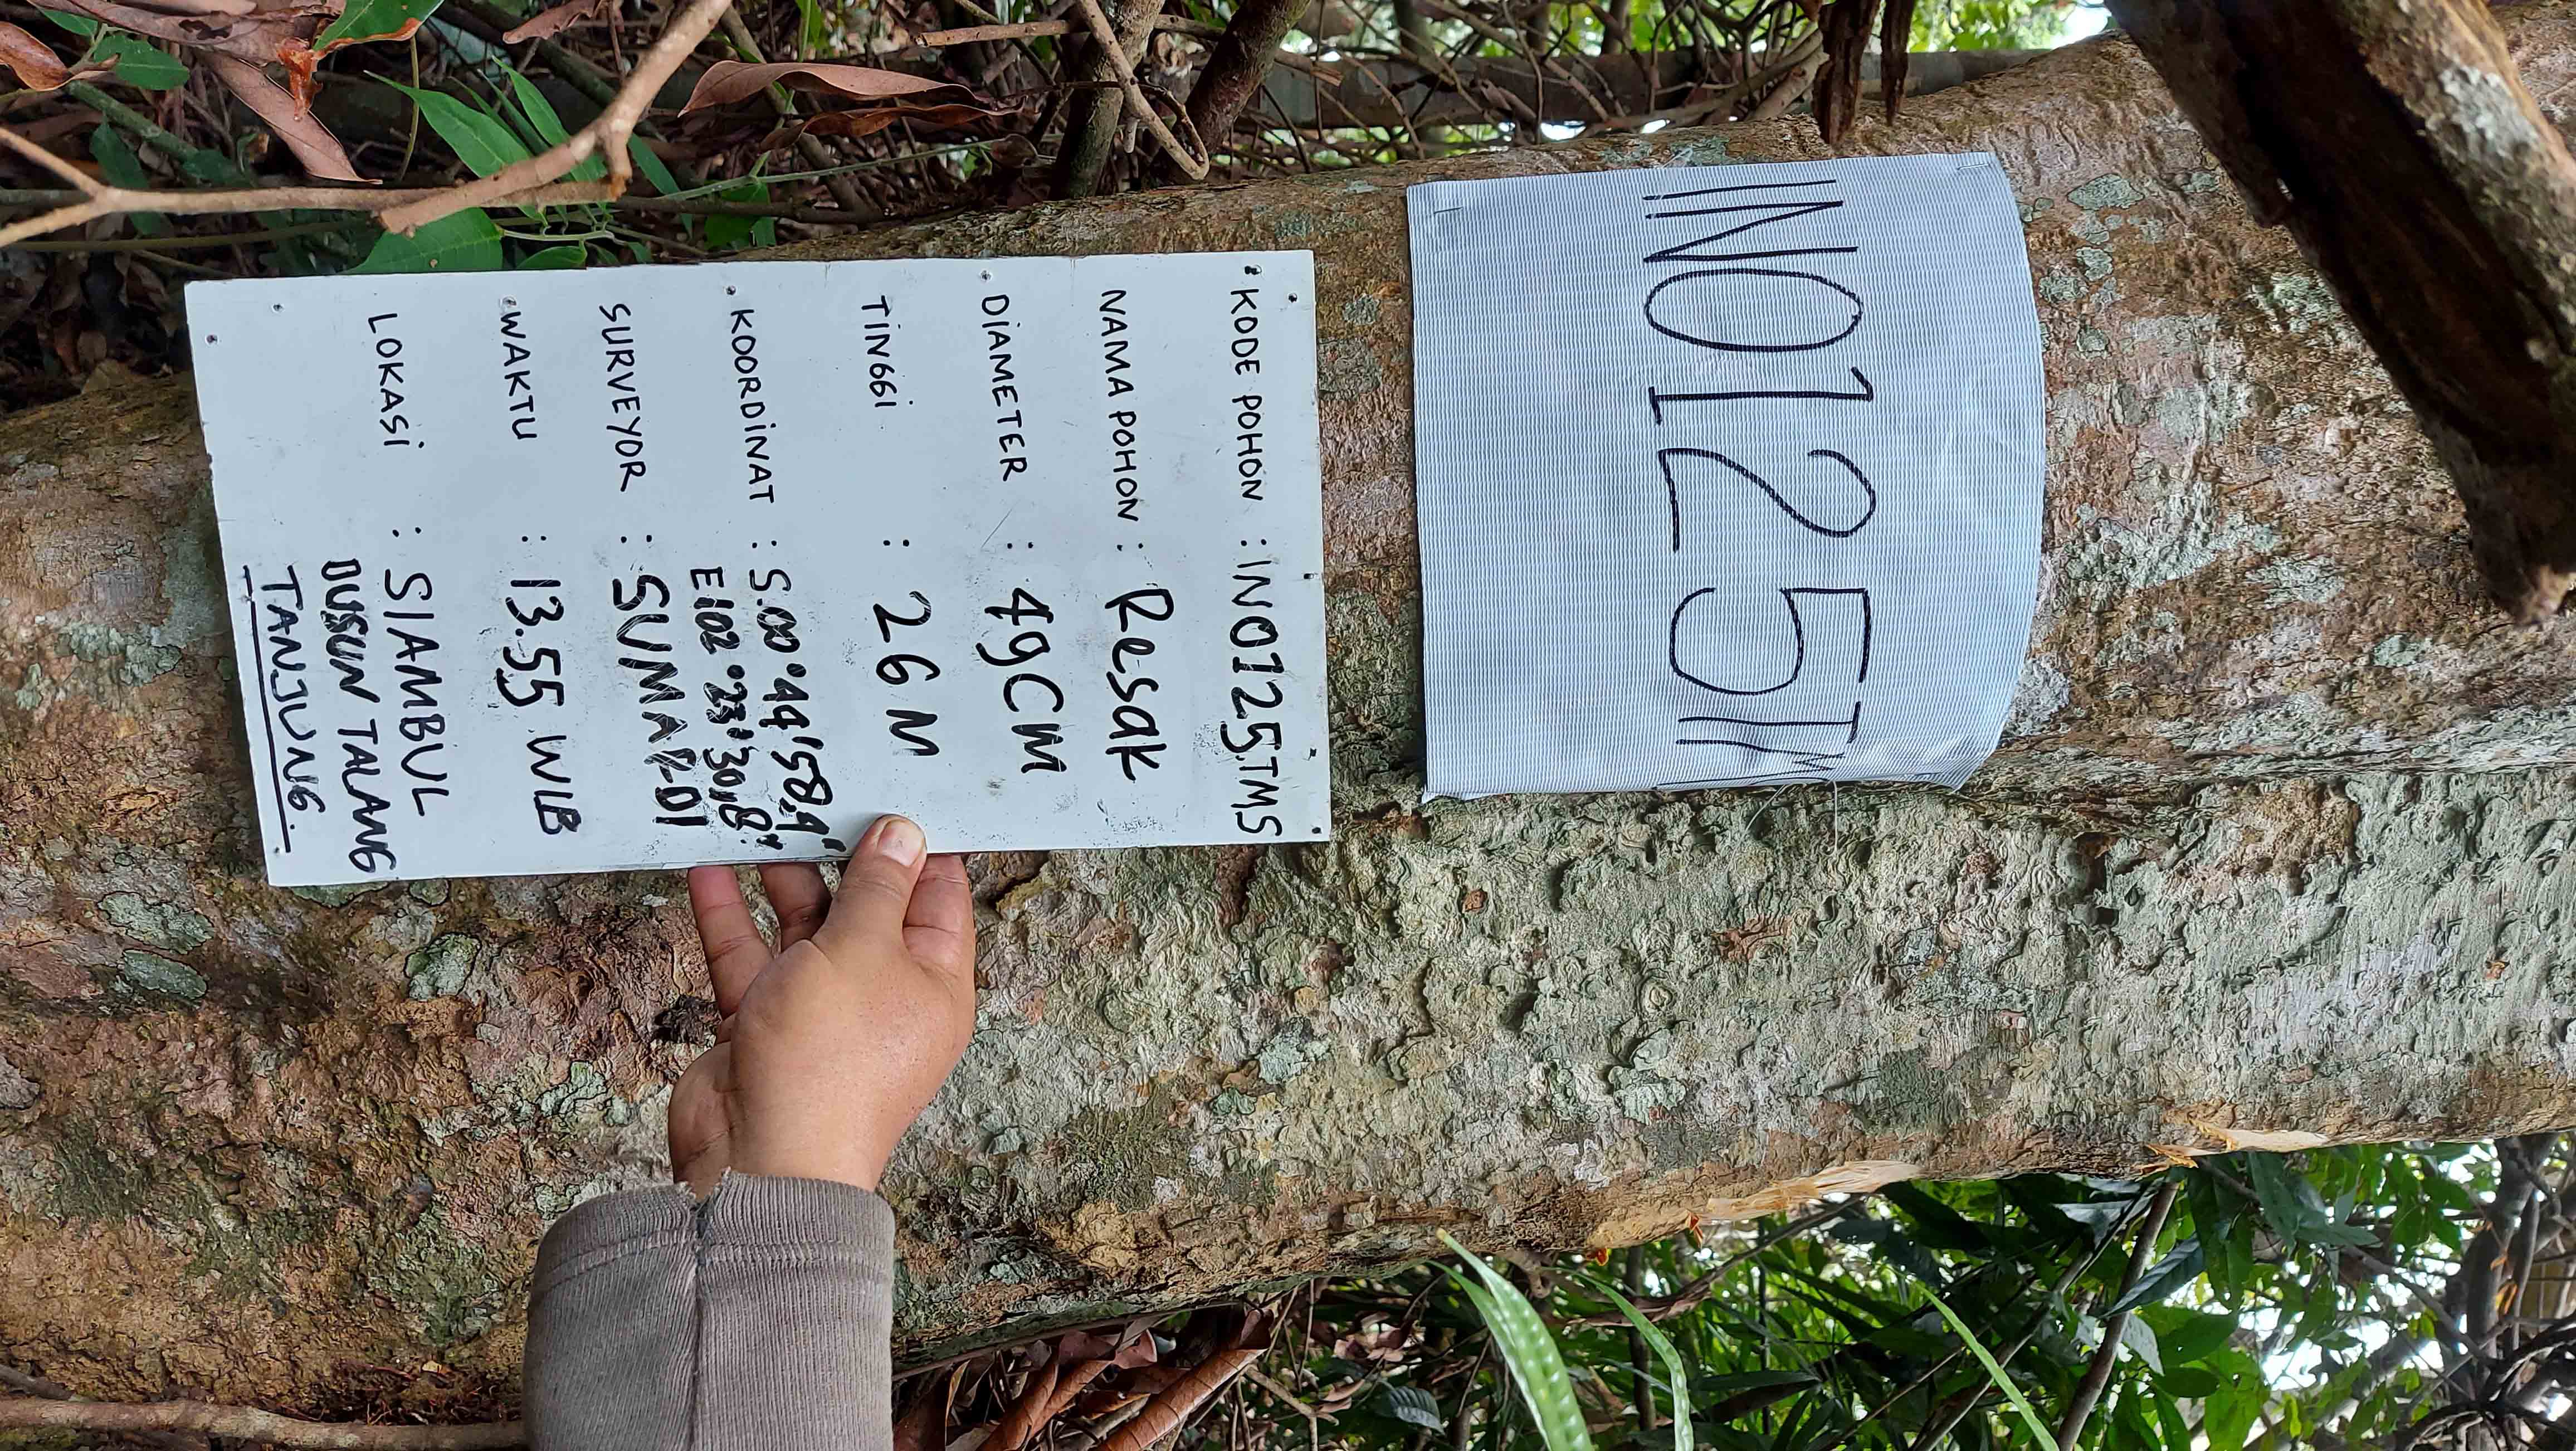 INO125TM
KODE POHON : INO125.TMS
NAMA POHON : Resak
DIAMETER : 49CM
TINGGI : 26 M
KOORDINAT : S.00°44'58,9"
E102°23'30,8"
SURVEYOR : SUMARDI
WAKTU : 13.55 WIB
LOKASI : SIAMBUL
DUSUN TALANG
TANJUNG.